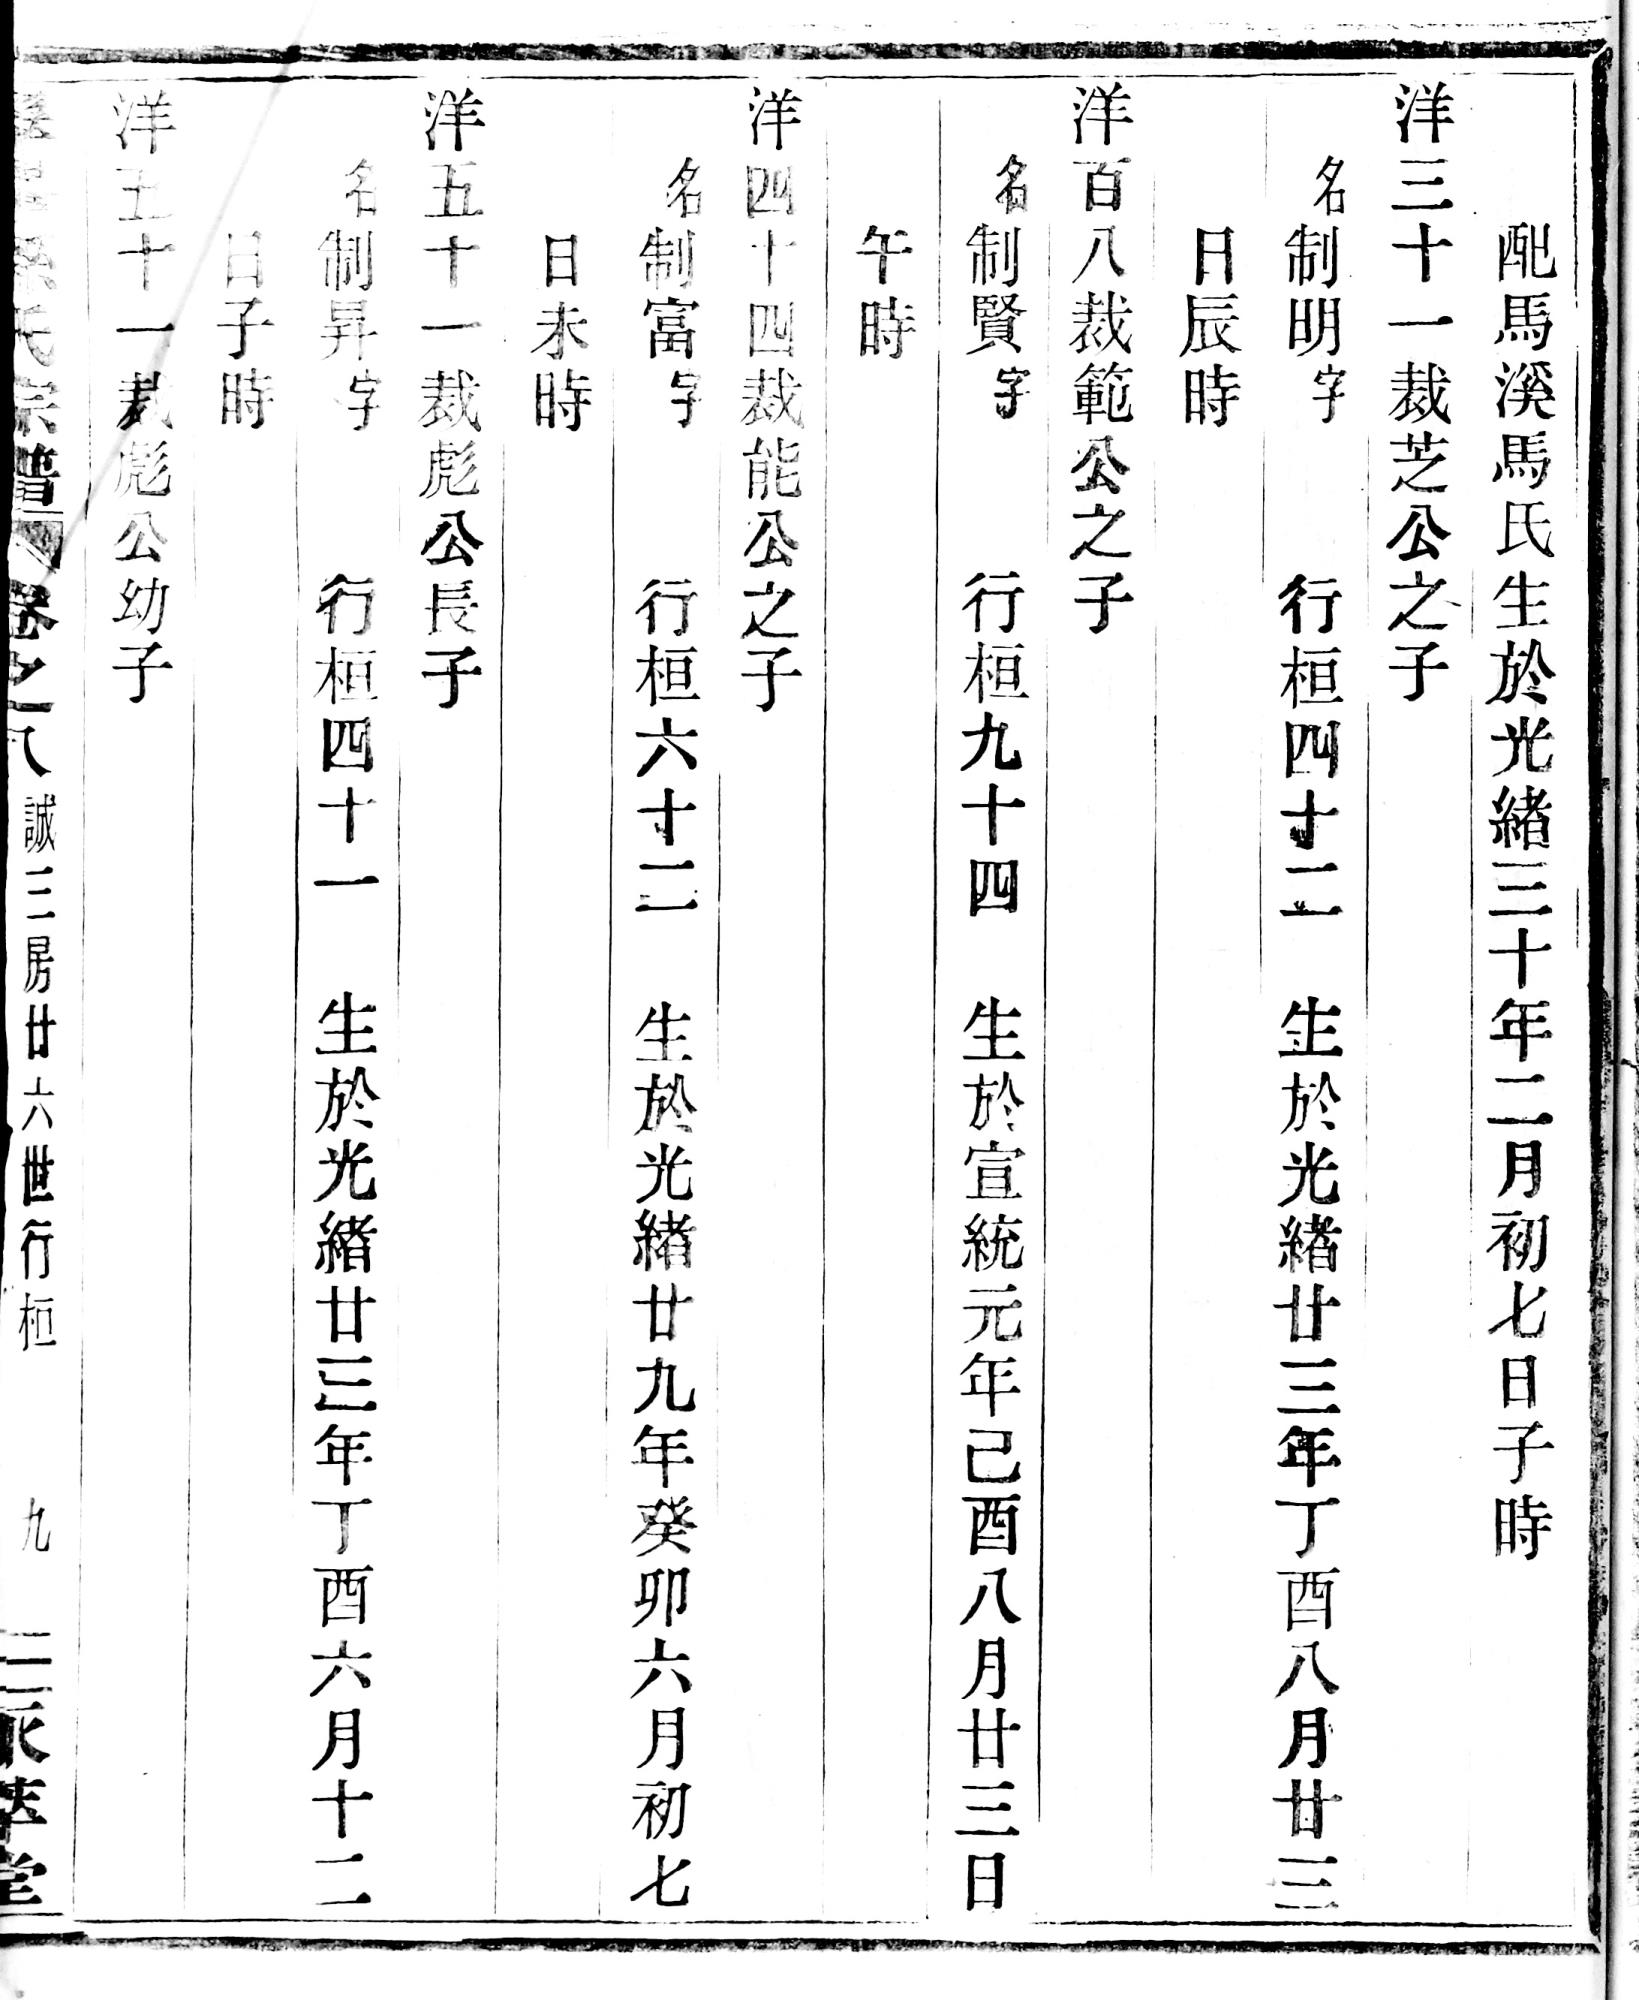 配馬溪馬氏生於光緒三十年二月初七日子時
洋三十一裁芝公之子
名制明字 行桓四十二 生於光緒廿三年丁酉八月廿三
日辰時
洋百八裁範公之子
名制賢字 行桓九十四 生於宣統元年己酉八月廿三日
午時
洋四十四裁能公之子
名制富字 行桓六十二 生於光緒廿九年癸卯六月初七
日未時
洋五十一裁彪公長子
名制昇字 行桓四十一 生於光緒廿三年丁酉六月十二
日子時
洋五十一裁彪公幼子
氏宗譜 卷之八 誠三房廿六世行桓 九 三派萃堂